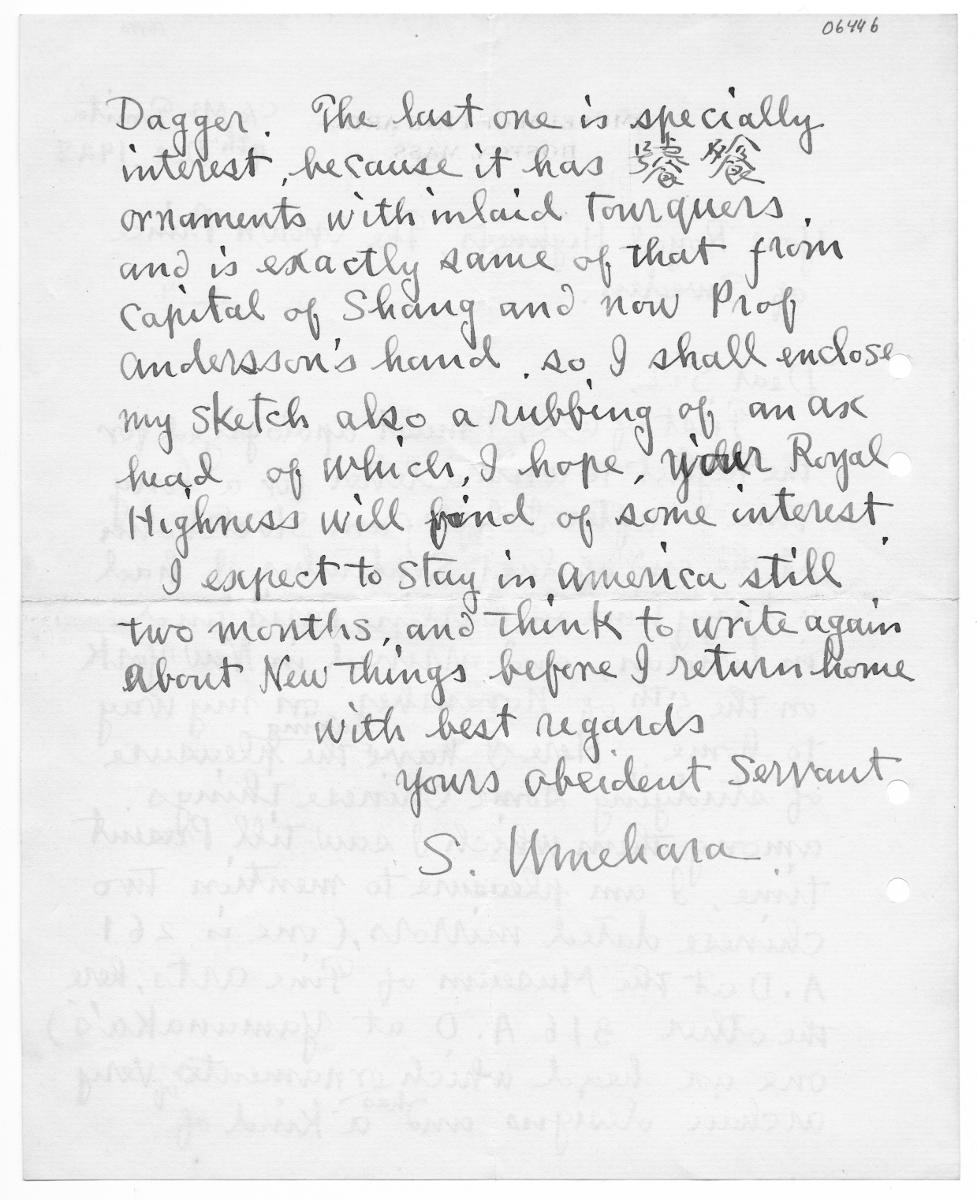 06446
Dagger. The last one is specially
interest, because it has 饕餮
ornaments with inlaid tourquers,
and is exactly same of that from
Capital of Shang and now Prof
Andersson's hand, so I shall enclose
my sketch also a rubbing of an ax
head of which, I hope, your Royal
Highness will find of some interest.
I expect to stay in America still
two months, and think to write again
about New things before I return home
with best regards
yours obeident Servant
S. Umehara